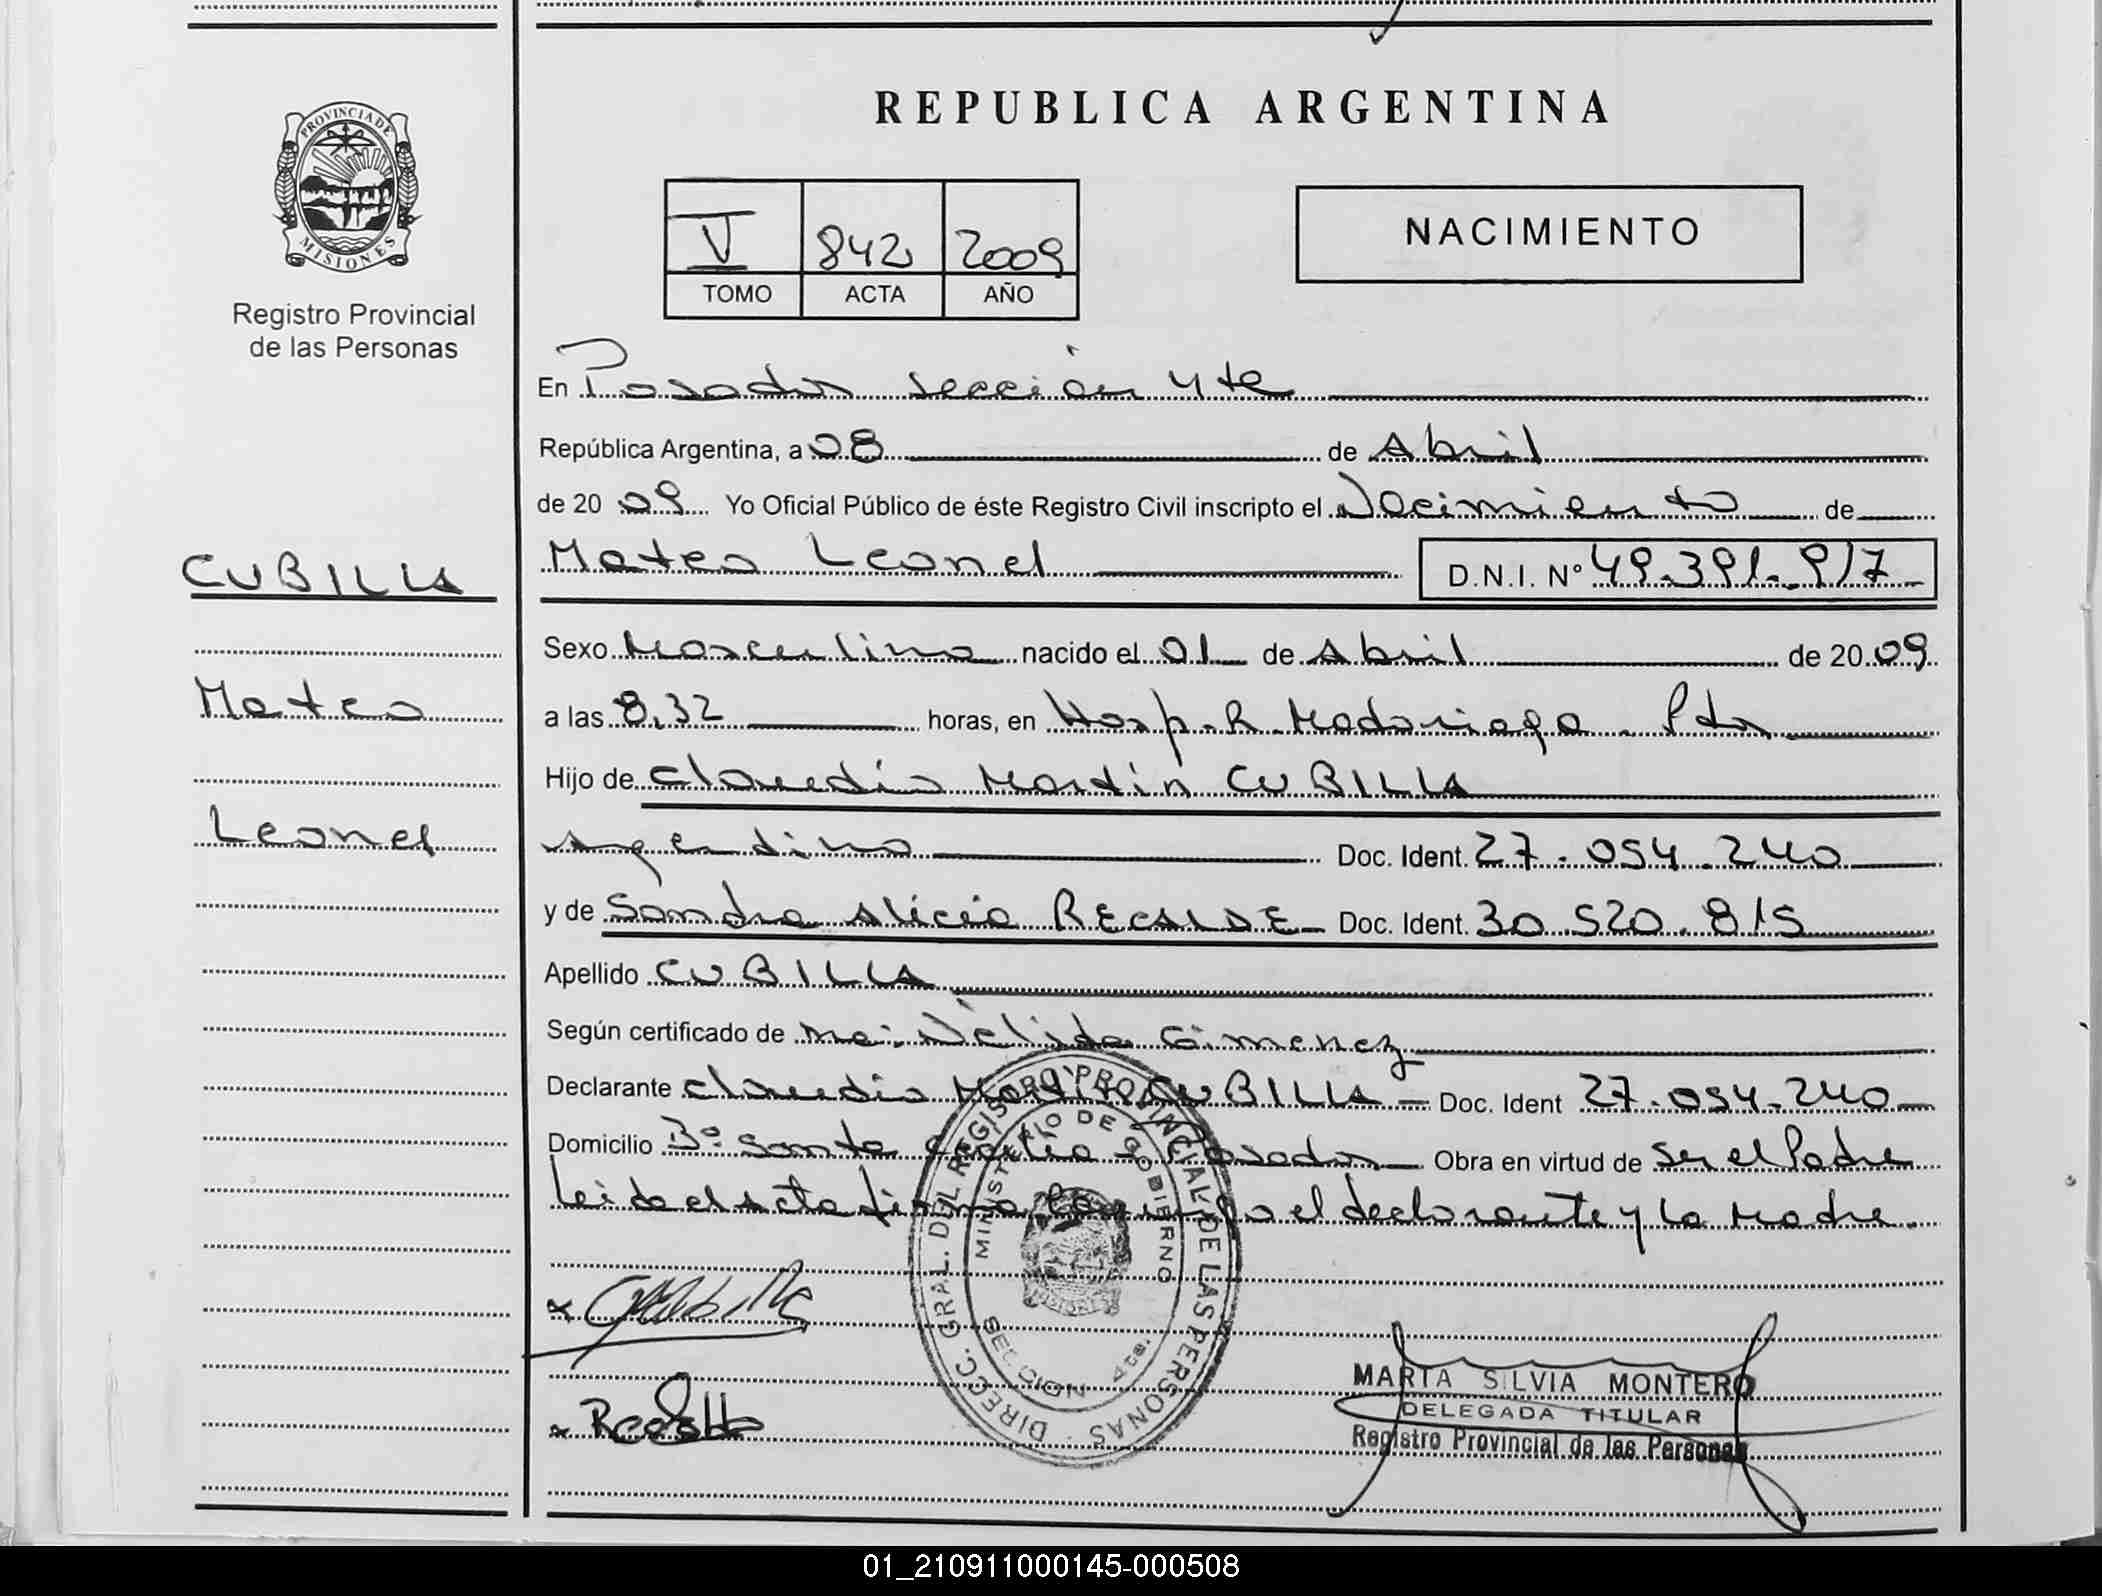 REPUBLICA ARGENTINA
PROVINCIA DE
MISIONES
Registro Provincial
de las Personas
V 842 2009
TOMO ACTA AÑO
NACIMIENTO
En Posadas sección 4ta
República Argentina, a 08 de Abril
de 2009 Yo Oficial Público de éste Registro Civil inscripto el Nacimiento de
CUBILLA
Mateo Leonel D.N.I. Nº 49.391.917
Sexo Masculino nacido el 01 de Abril de 2009
Mateo
a las 8,32 horas, en Hosp. R. Madariaga. Pdas
Hijo de Claudio Martín CUBILLA
Leonel
Argentino Doc. Ident. 27.054.240
y de Sandra Alicia RECALDE Doc. Ident. 30.520.815
Apellido CUBILLA
Según certificado de Nélida Gimenez
Declarante Claudio Martín CUBILLA Doc. Ident 27.054.240
Domicilio Bº Santa Cecilia - Posadas Obra en virtud de ser el Padre
Leida el acta firma conmigo el declarante y la Madre.
DIRECC. GRAL. DEL REGISTRO PROVINCIAL DE LAS PERSONAS
MINISTERIO DE GOBIERNO
SECCION 4ta.
MARTA SILVIA MONTERO
DELEGADA TITULAR
Registro Provincial de las Personas
01_210911000145-000508